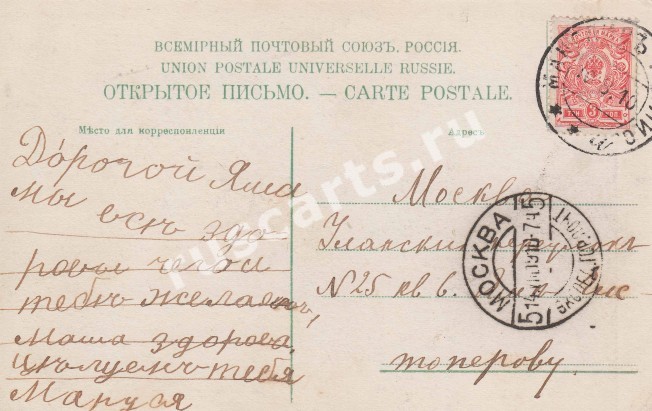 ВСЕМІРНЫЙ ПОЧТОВЫЙ СОЮЗЪ. РОССІЯ.
UNION POSTALE UNIVERSELLE RUSSIE.
ОТКРЫТОЕ ПИСЬМО. — CARTE POSTALE.
Мѣсто для корреспонденціи
Адресъ
Дорогой Яша
мы всѣ здо-
ровы чего и
тебѣ желаемъ,
Маша здорова,
цѣлуемъ тебя
Маруся
Москва
Уланский переулок
N 25 кв 6.
топерову.
МОСКВА
ruscarts.ru